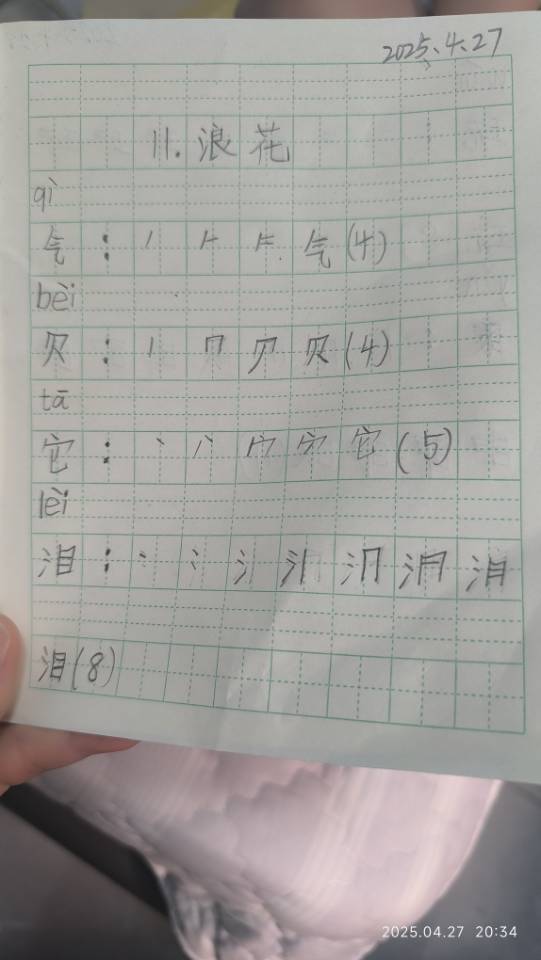 2025.4.27
11.浪花
qì
气：丿 𠂉 气(4)
bèi
贝：丨 冂 贝(4)
tā
它：丶 丶丶 宀 它(5)
lèi
泪：丶 冫 氵 泪
泪(8)
2025.04.27 20:34